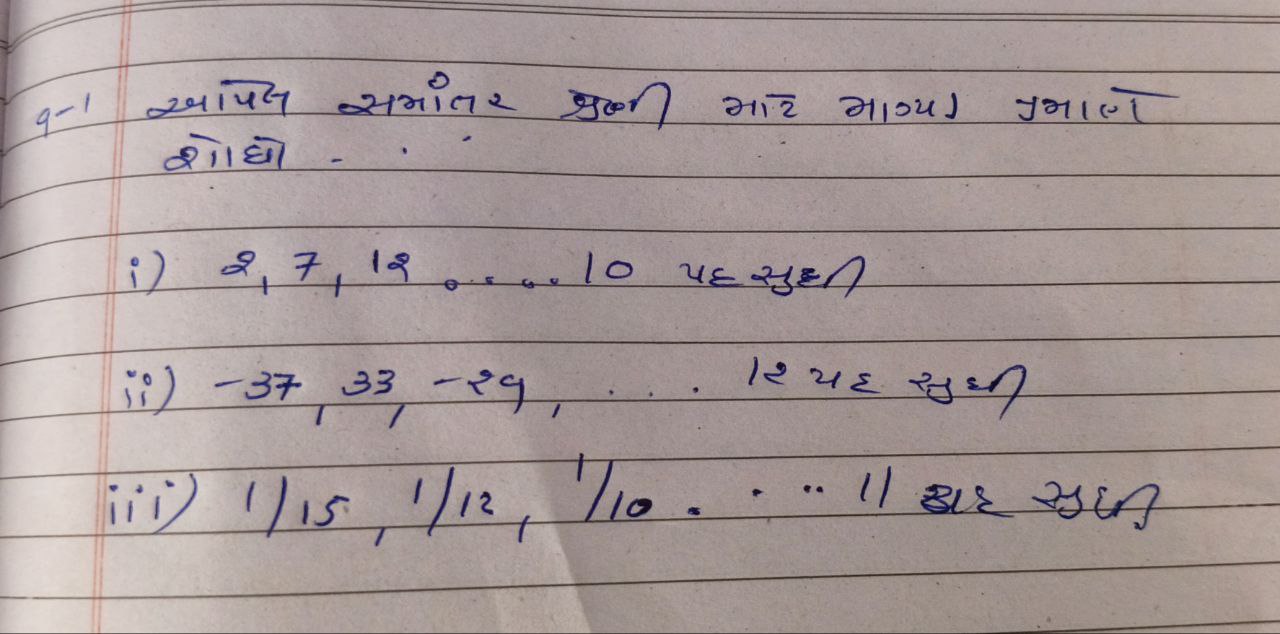 q-1 આપેલ સમાંતર શ્રેણી માટે માગ્યા પ્રમાણે
શોધો -
i) 2, 7, 12 ..... 10 પદ સુધી
ii) -37, 33, -29, .... 12 પદ સુધી
iii) 1/15, 1/12, 1/10 .... 11 પદ સુધી